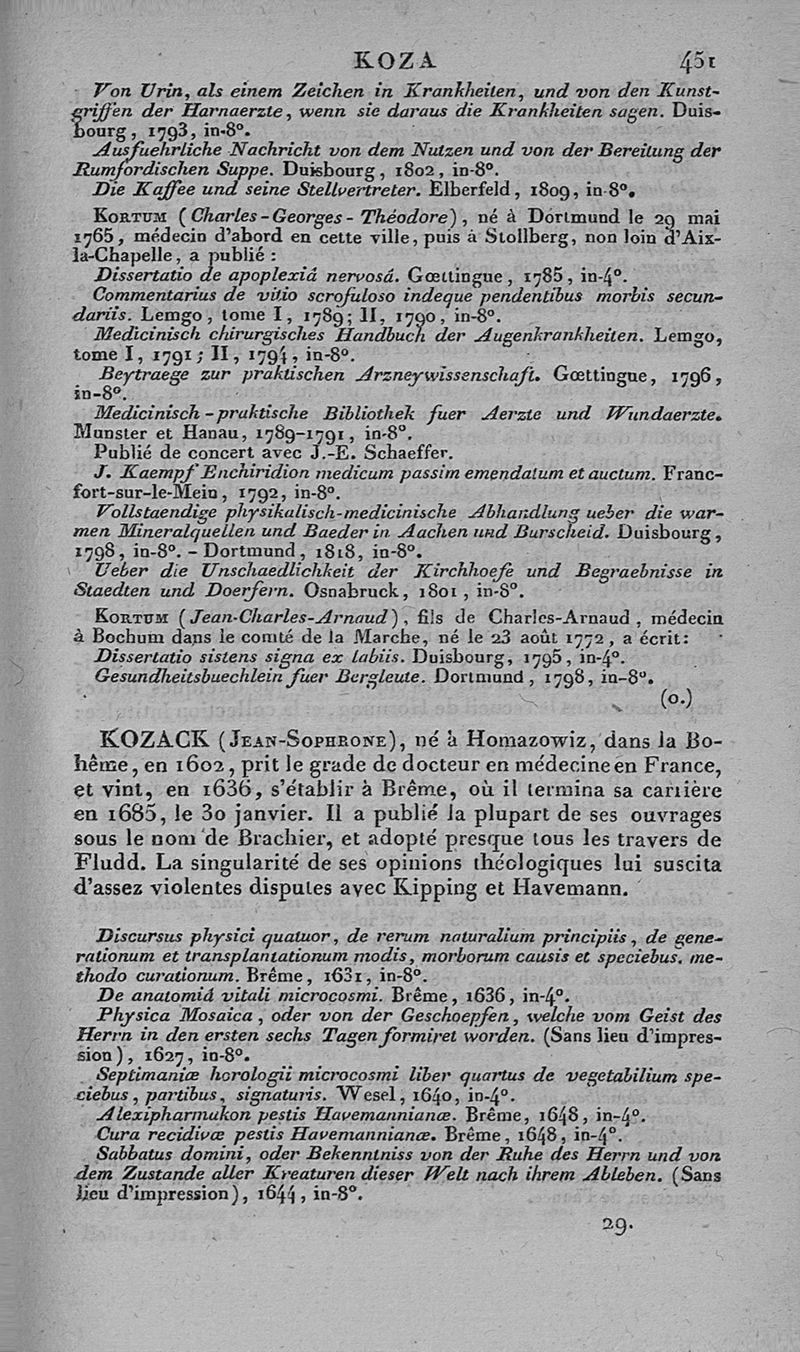 KOZA 451
Von Urin, als einem Zeichen in Krankheiten, und von den Kunst-
griffen der Harnaerzte, wenn sie daraus die Krankheiten sagen. Duis-
bourg, 1793, in-8°.
Ausfuehrliche Nachricht von dem Nutzen und von der Bereitung der
Rumfordischen Suppe. Duisbourg, 1802, in-8°.
Die Kaffee und seine Stellvertreter. Elberfeld, 1809, in-8°.
KORTUM (Charles-Georges-Théodore), né à Dortmund le 29 mai
1765, médecin d'abord en cette ville, puis à Stollberg, non loin d'Aix-
la-Chapelle, a publié :
Dissertatio de apoplexiâ nervosâ. Gœttingue, 1785, in-4°.
Commentarius de vitio scrofuloso indeque pendentibus morbis secun-
dariis. Lemgo, tome I, 1789; II, 1790, in-8°.
Medicinisch chirurgisches Handbuch der Augenkrankheiten. Lemgo,
tome I, 1791; II, 1794, in-8°.
Beytraege zur praktischen Arzneywissenschaft. Gœttingue, 1796,
in-8°.
Medicinisch-praktische Bibliothek fuer Aerzte und Wundaerzte.
Munster et Hanau, 1789-1791, in-8°.
Publié de concert avec J.-E. Schaeffer.
J. Kaempf Enchiridion medicum passim emendatum et auctum. Franc-
fort-sur-le-Mein, 1792, in-8°.
Vollstaendige physikalisch-medicinische Abhandlung ueber die war-
men Mineralquellen und Baeder in Aachen und Burscheid. Duisbourg,
1798, in-8°. - Dortmund, 1818, in-8°.
Ueber die Unschaedlichkeit der Kirchhoefe und Begraebnisse in
Staedten und Doerfern. Osnabruck, 1801, in-8°.
KORTUM (Jean-Charles-Arnaud), fils de Charles-Arnaud, médecin
à Bochum dans le comté de la Marche, né le 23 août 1772, a écrit:
Dissertatio sistens signa ex labiis. Duisbourg, 1795, in-4°.
Gesundheitsbuechlein fuer Bergleute. Dortmund, 1798, in-8°.
(o.)
KOZACK (JEAN-SOPHRONE), né à Homazowiz, dans la Bo-
hême, en 1602, prit le grade de docteur en médecine en France,
et vint, en 1636, s'établir à Brême, où il termina sa carrière
en 1685, le 30 janvier. Il a publié la plupart de ses ouvrages
sous le nom de Brachier, et adopté presque tous les travers de
Fludd. La singularité de ses opinions théologiques lui suscita
d'assez violentes disputes avec Kipping et Havemann.
Discursus physici quatuor, de rerum naturalium principiis, de gene-
rationum et transplantationum modis, morborum causis et speciebus, me-
thodo curationum. Brême, 1631, in-8°.
De anatomiâ vitali microcosmi. Brême, 1636, in-4°.
Physica Mosaica, oder von der Geschoepfen, welche vom Geist des
Herrn in den ersten sechs Tagen formiret worden. (Sans lieu d'impres-
sion), 1627, in-8°.
Septimaniæ horologii microcosmi liber quartus de vegetabilium spe-
ciebus, partibus, signaturis. Wesel, 1640, in-4°.
Alexipharmakon pestis Havemannianæ. Brême, 1648, in-4°.
Cura recidivæ pestis Havemannianæ. Brême, 1648, in-4°.
Sabbatus domini, oder Bekenntniss von der Ruhe des Herrn und von
dem Zustande aller Kreaturen dieser Welt nach ihrem Ableben. (Sans
lieu d'impression), 1644, in-8°.
29.